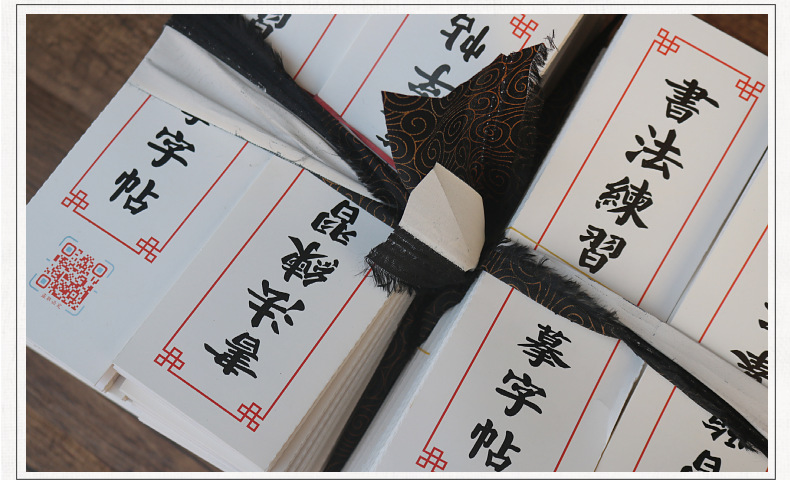 字帖
字帖
書法練習
書法練習
摹字帖